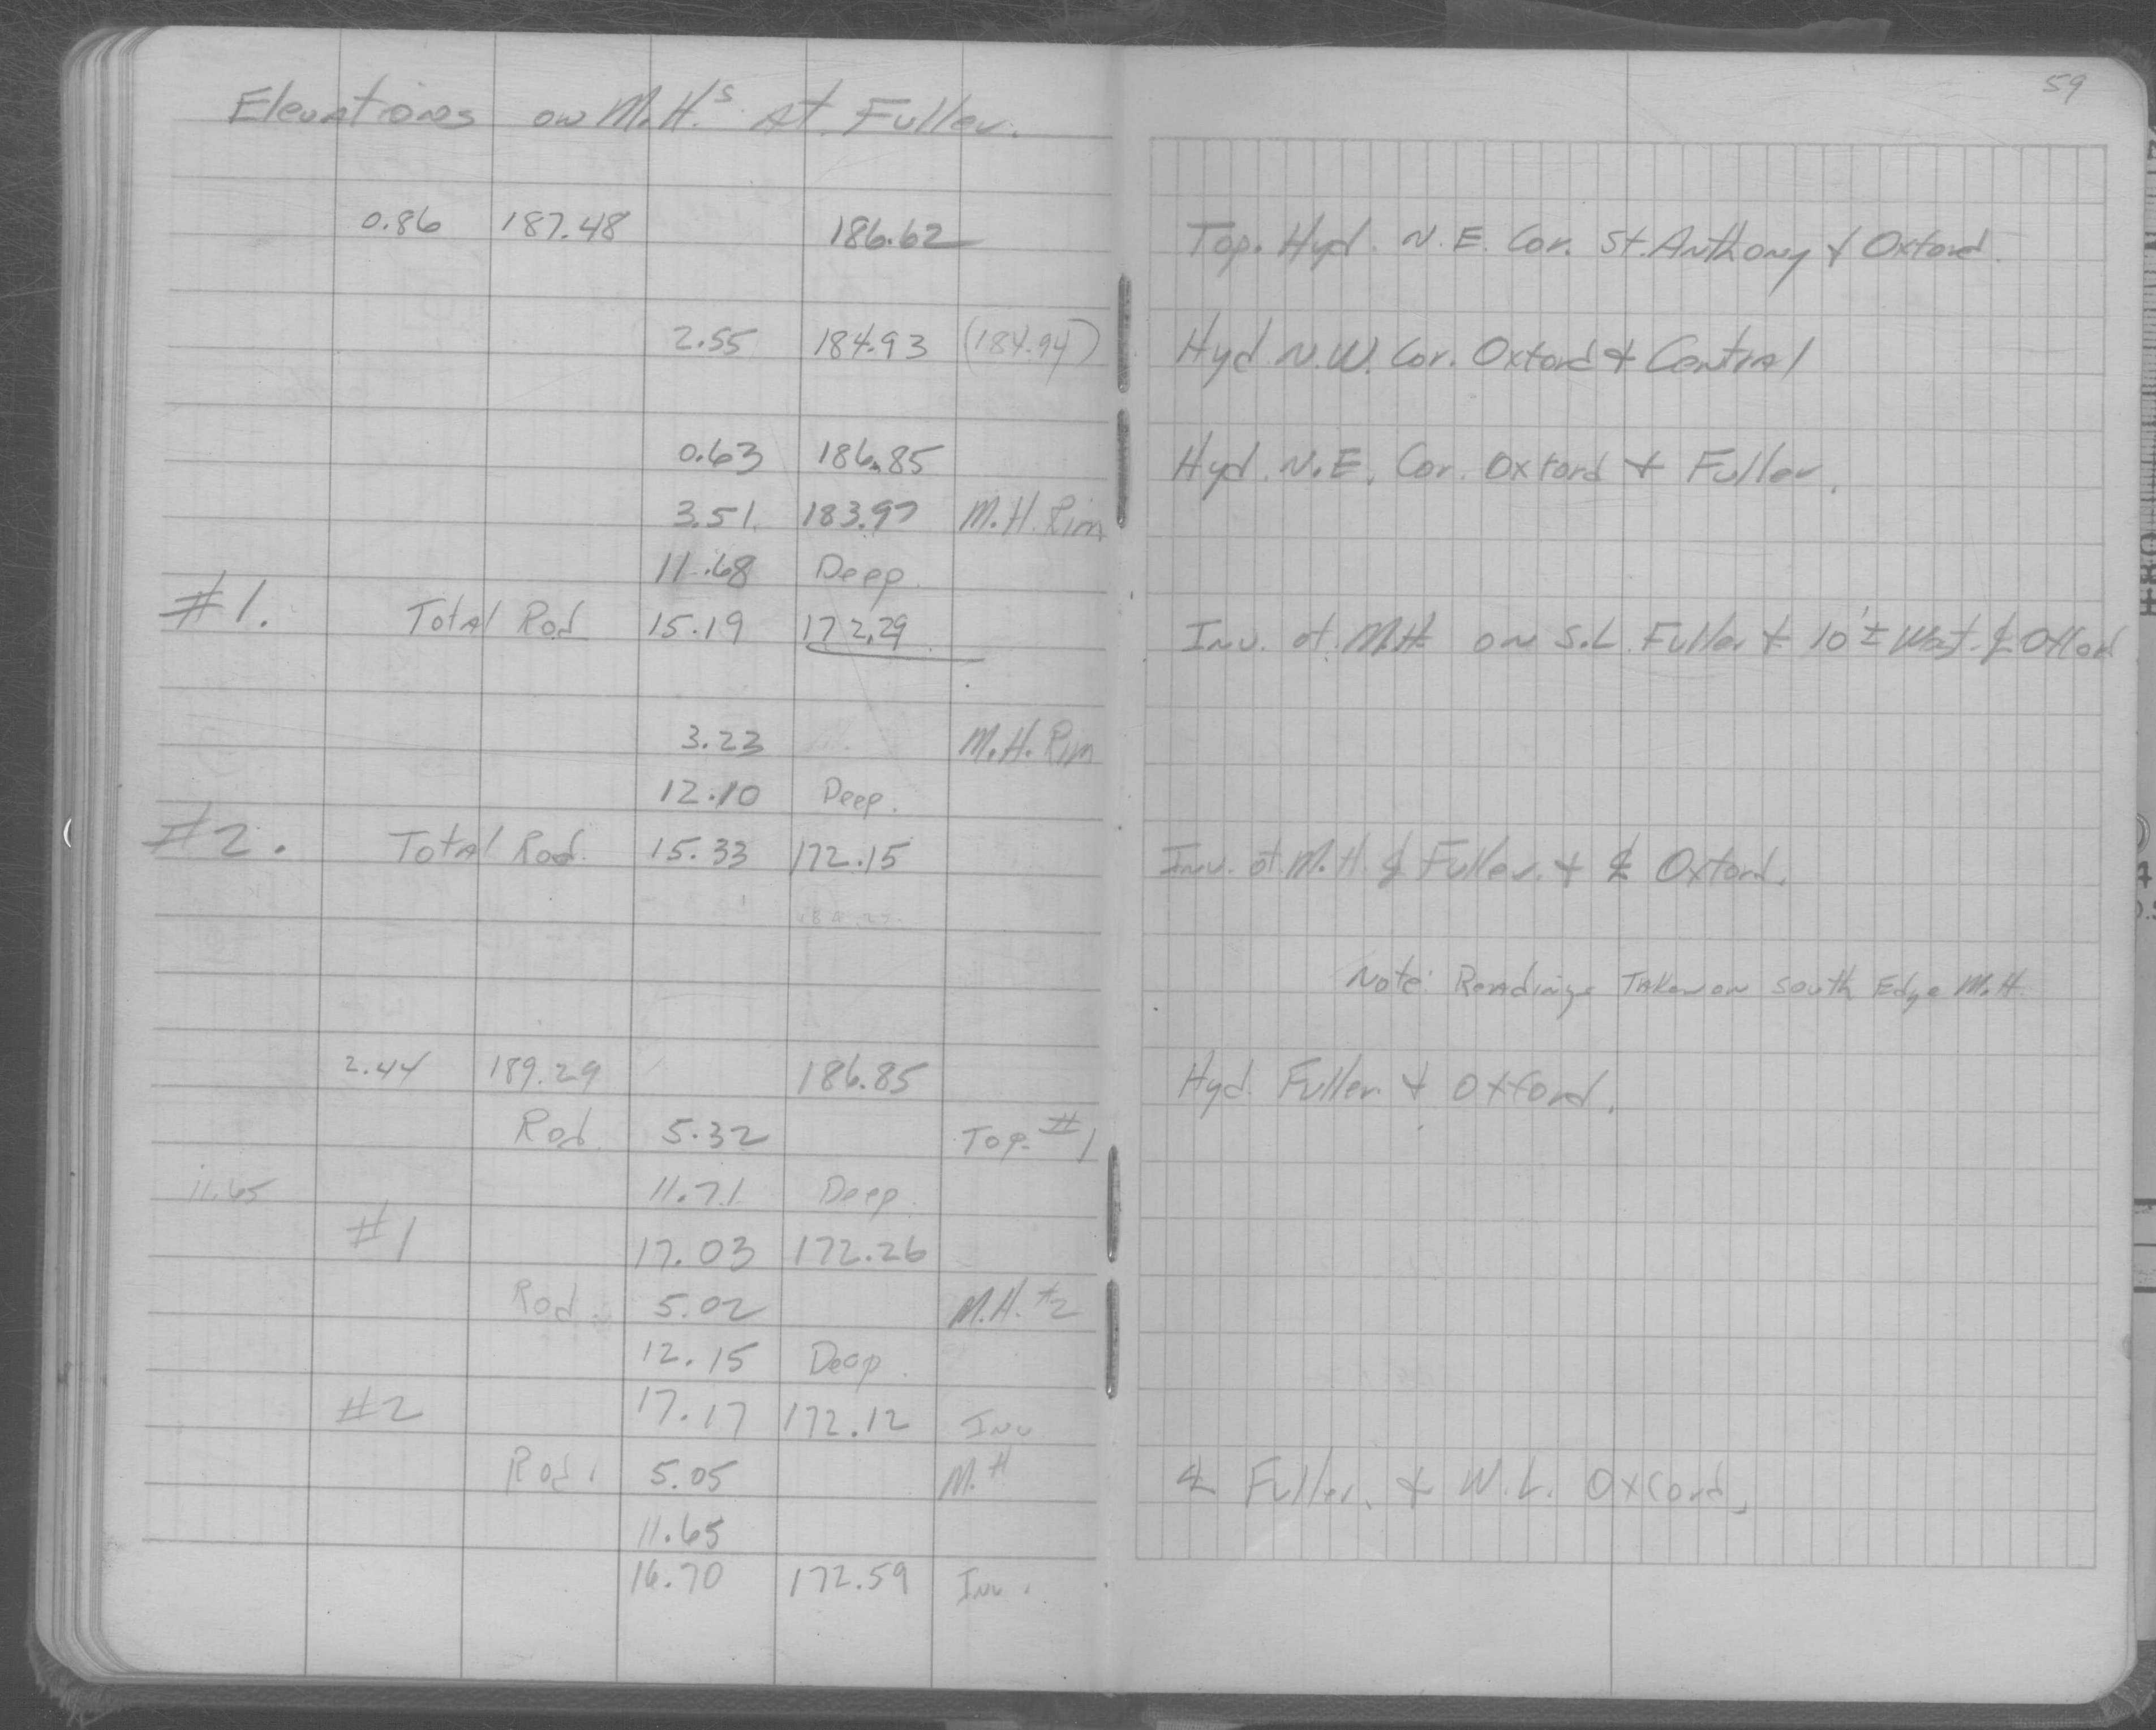 59
Elevations on M.H.s At Fuller.
0.86 187.48 186.62 Top. Hyd. N.E. Cor. St. Anthony & Oxford.
2.55 184.93 (184.94) Hyd N.W. Cor. Oxford & Central
0.63 186.85 Hyd. N.E. Cor. Oxford & Fuller.
3.51 183.97 M.H. Rim
11.68 Deep.
#1. Total Rod 15.19 172.29 Inv. of M.H. on S.L. Fuller & 10'± West ℄ Oxford
3.23 M.H. Rim
12.10 Deep.
#2. Total Rod. 15.33 172.15 Inv. of M.H. ℄ Fuller. & ℄ Oxford.
Note: Readings Taken on South Edge M.H.
2.44 189.29 186.85 Hyd. Fuller. & Oxford.
Rod 5.32 Top. #1
11.65 11.71 Deep.
#1 17.03 172.26
Rod. 5.02 M.H. #2
12.15 Deep.
#2 17.17 172.12 Inv
Rod. 5.05 M.H ℄ Fuller. & W.L. Oxford.
11.65
16.70 172.59 Inv.